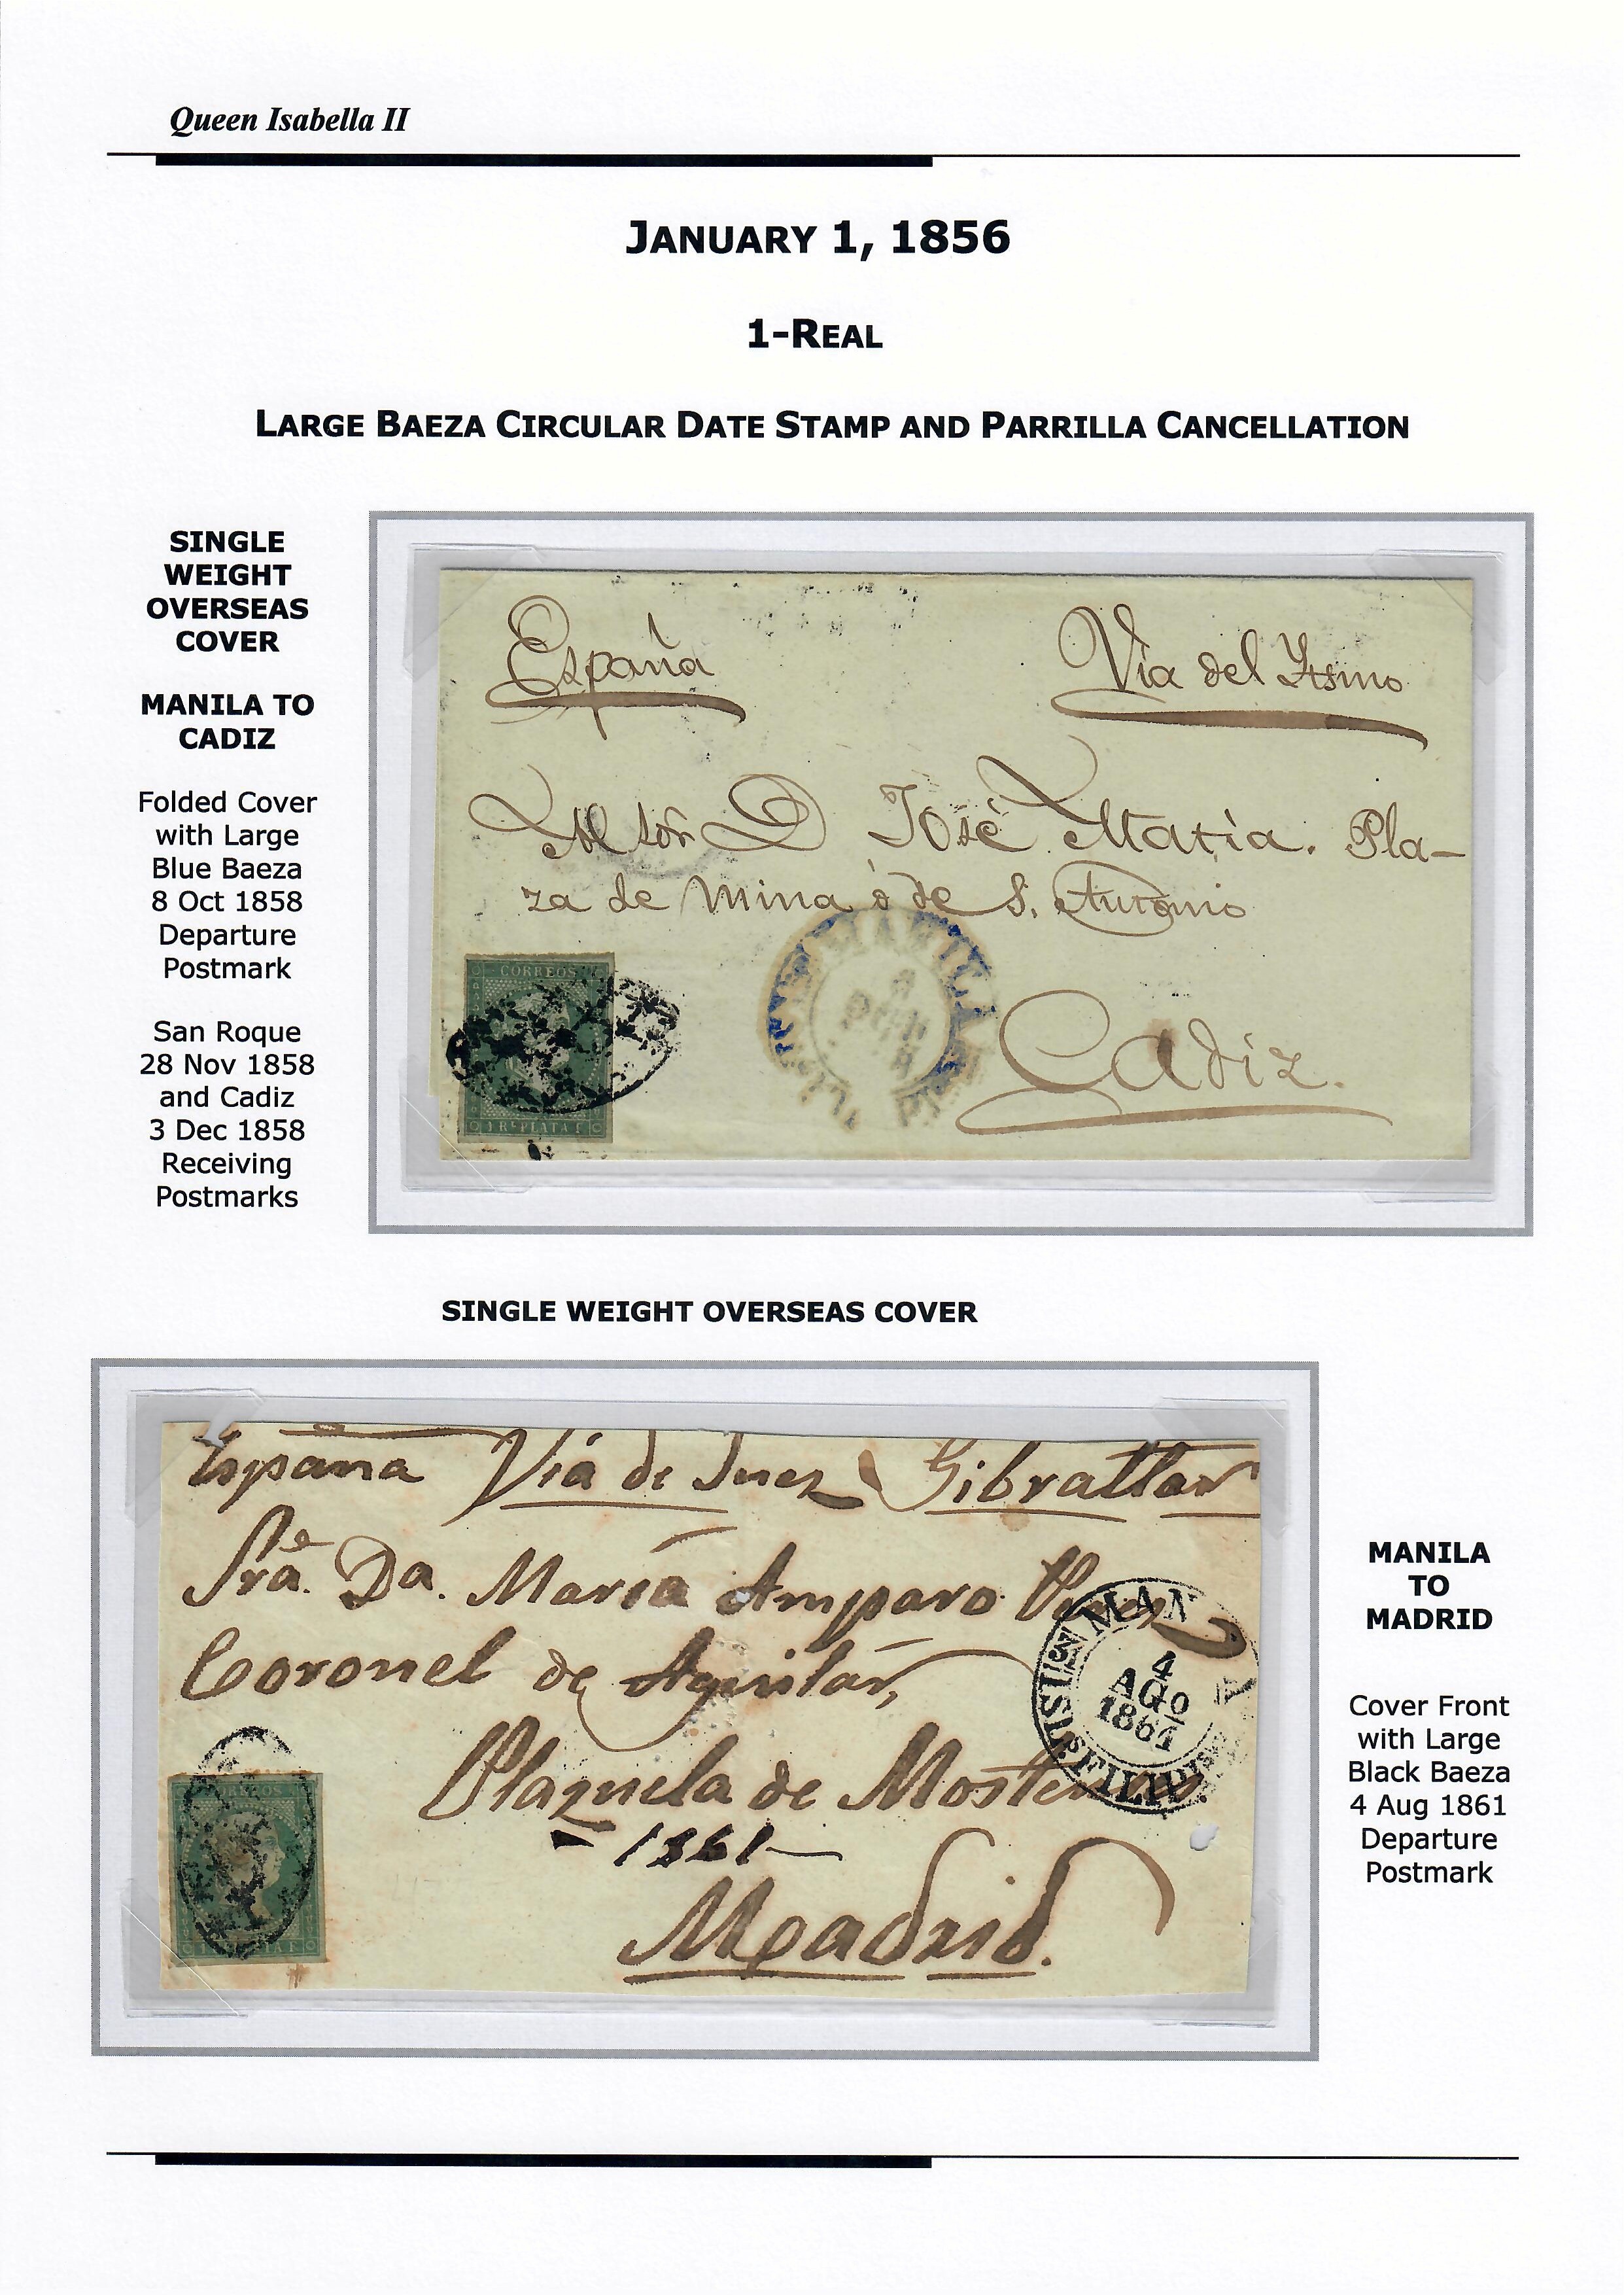 Queen Isabella II
JANUARY 1, 1856
1-REAL
LARGE BAEZA CIRCULAR DATE STAMP AND PARRILLA CANCELLATION
SINGLE
WEIGHT
OVERSEAS
COVER
MANILA TO
CADIZ
Folded Cover
with Large
Blue Baeza
8 Oct 1858
Departure
Postmark
San Roque
28 Nov 1858
and Cadiz
3 Dec 1858
Receiving
Postmarks
España
Via del Ytsmo
Al Sor D José Matia. Pla-
za de Mina ó de S. Antonio
Cadiz.
CORREOS
1 RL PLATA F
MANILA
SINGLE WEIGHT OVERSEAS COVER
España Via de Suez Gibraltar
Sra. Da. María Amparo
Coronel de Aguilar,
Plazuela de
1861
Madrid.
MAN A
4
AGO
1861
ISLS FILIPINAS
1 PLATA F
MANILA
TO
MADRID
Cover Front
with Large
Black Baeza
4 Aug 1861
Departure
Postmark